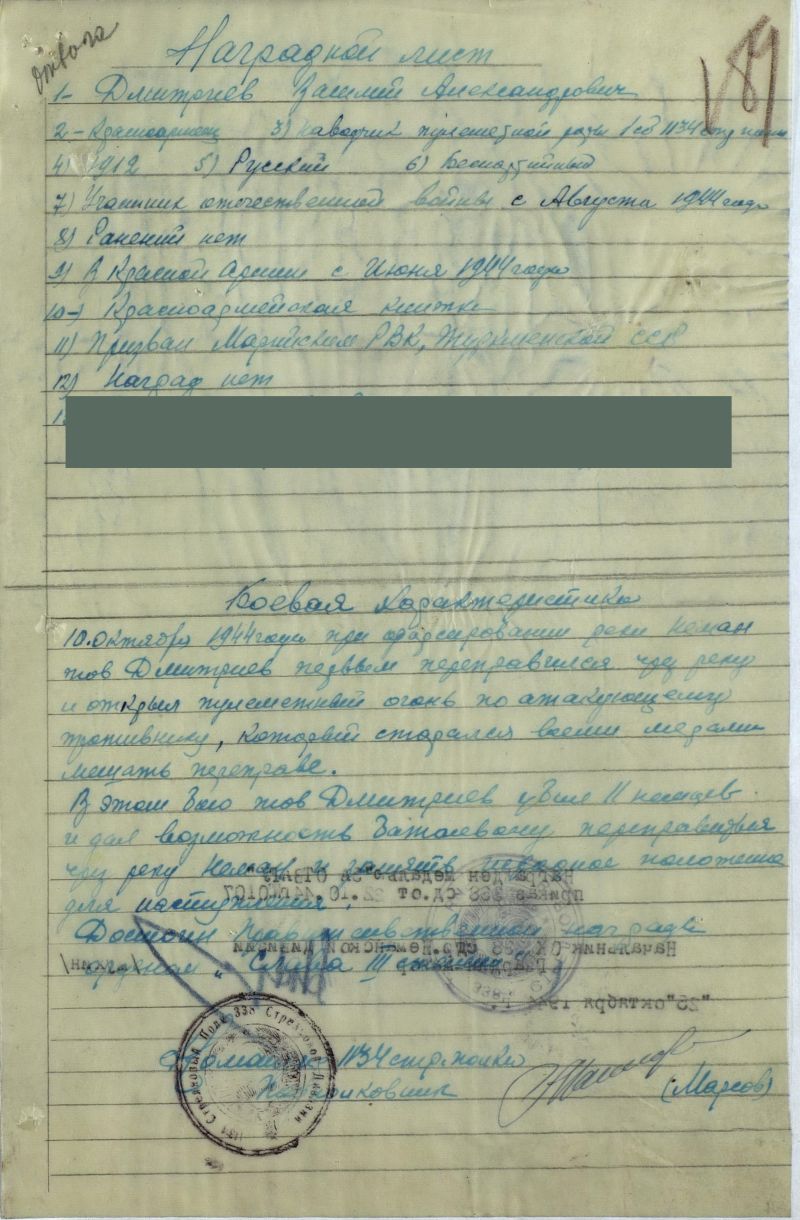 отвага
Наградной лист
189
1- Дмитриев Василий Александрович
2- Красноармеец 3) наводчик пулеметной роты 1 сб 1134 стр полка
4) 1912 5) Русский 6) Беспартийный
7) Участник отечественной войны с Августа 1944 года
8) Ранений нет
9) В Красной Армии с Июня 1944 года
10-) Красноармейская книжка
11) Призван Марийским РВК, Туркменской ССР
12) Наград нет
Боевая характеристика
10. октября 1944 года при форсировании реки Неман
тов Дмитриев первым переправился чрез реку
и открыл пулеметный огонь по атакующему
противнику, который старался всеми мерами
мешать переправе.
В этом бою тов Дмитриев убил 11 немцев
и дал возможность батальону переправиться
чрез реку Неман и занять исходное положение
для наступления.
Достоин правительственной награды
орденом „Слава III степени"
Награжден медалью "За отвагу"
приказ 338 сд. от 22.10.44г. 0107
Начальник 338 стр. Неманской Дивизии
"25" октября 1944 г.
1134 Стрелковый Полк 338 Стрелковой Дивизии
Командир 1134 стр. полка
Подполковник (Марсов)